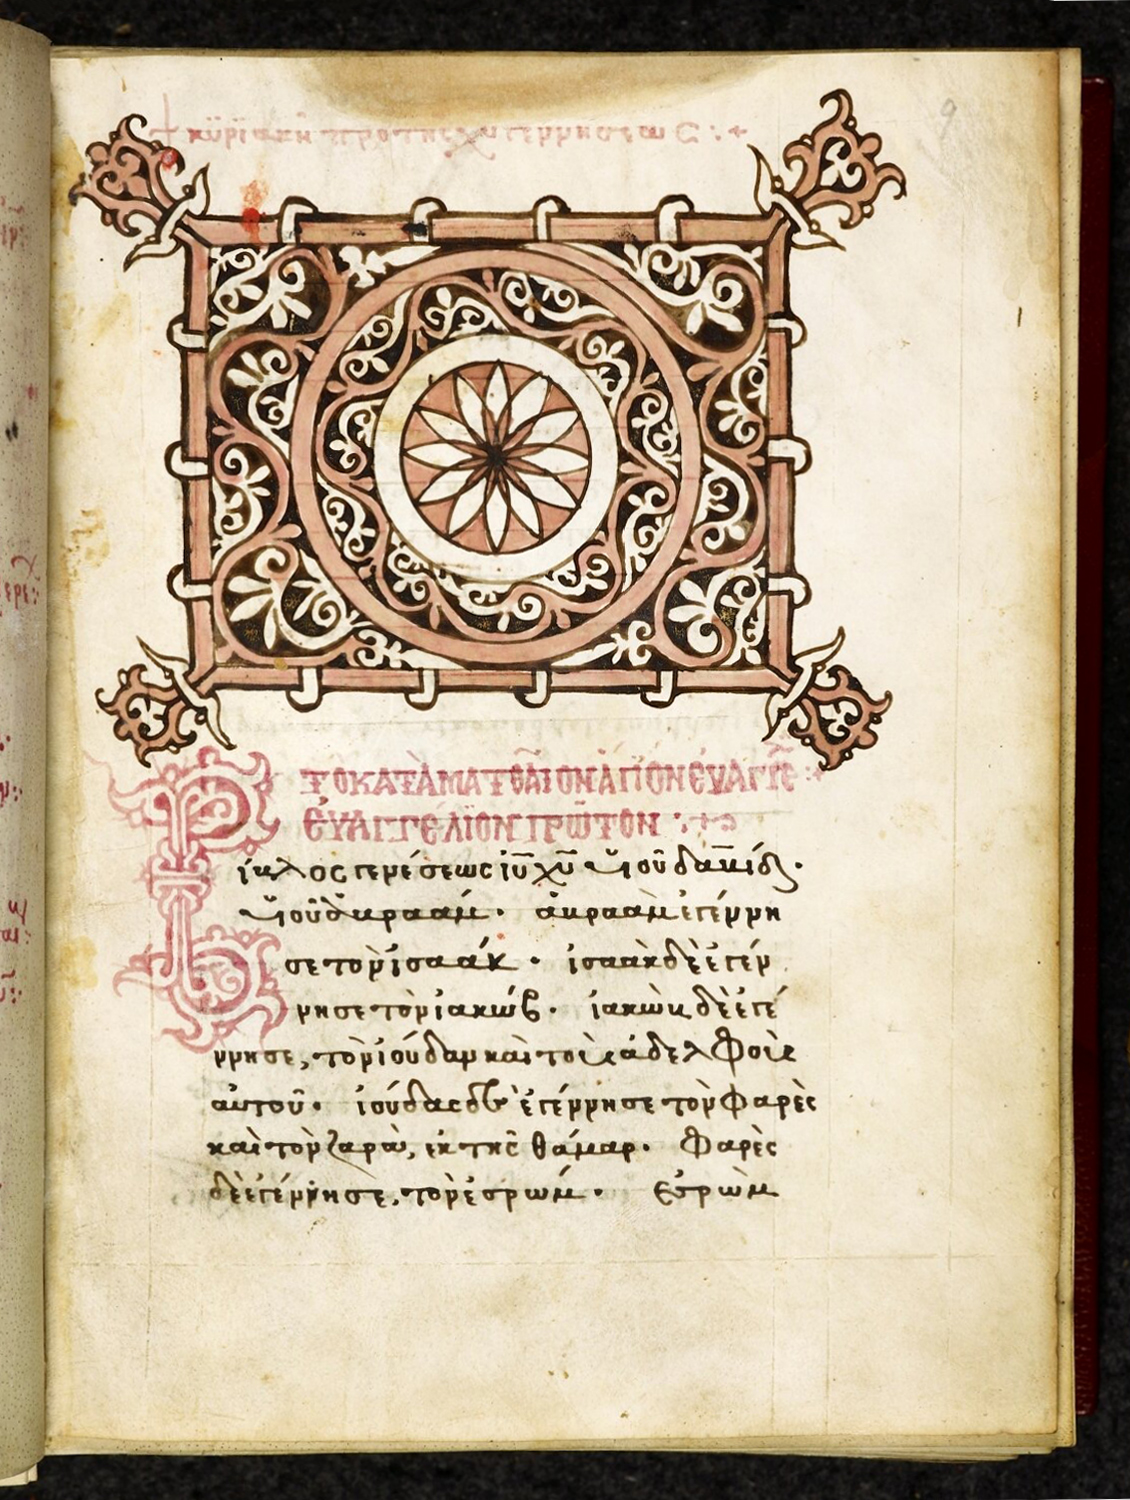 + κυριακὴ πρὸ τῆς χυ γεννήσεως :+
9
Τὸ κατὰ Ματθαῖον ἅγιον εὐαγγε :+
εὐαγγέλιον πρῶτον :+
Βίβλος γενέσεως ἰυ χυ υἱοῦ δαυίδ·
υἱοῦ ἀβραάμ· ἀβραὰμ ἐγέννη
σε τὸν ἰσαάκ· ἰσαὰκ δὲ ἐγέν
νησε τὸν ἰακώβ· ἰακὼβ δὲ ἐγέ
ννησε, τὸν ἰούδαν καὶ τοὺς ἀδελφοὺς
αὐτοῦ· ἰούδας δὲ ἐγέννησε τὸν φαρὲς
καὶ τὸν ζαρὰ, ἐκ τῆς θάμαρ· Φαρὲς
δὲ ἐγέννησε, τὸν ἐσρώμ· Ἐσρὼμ